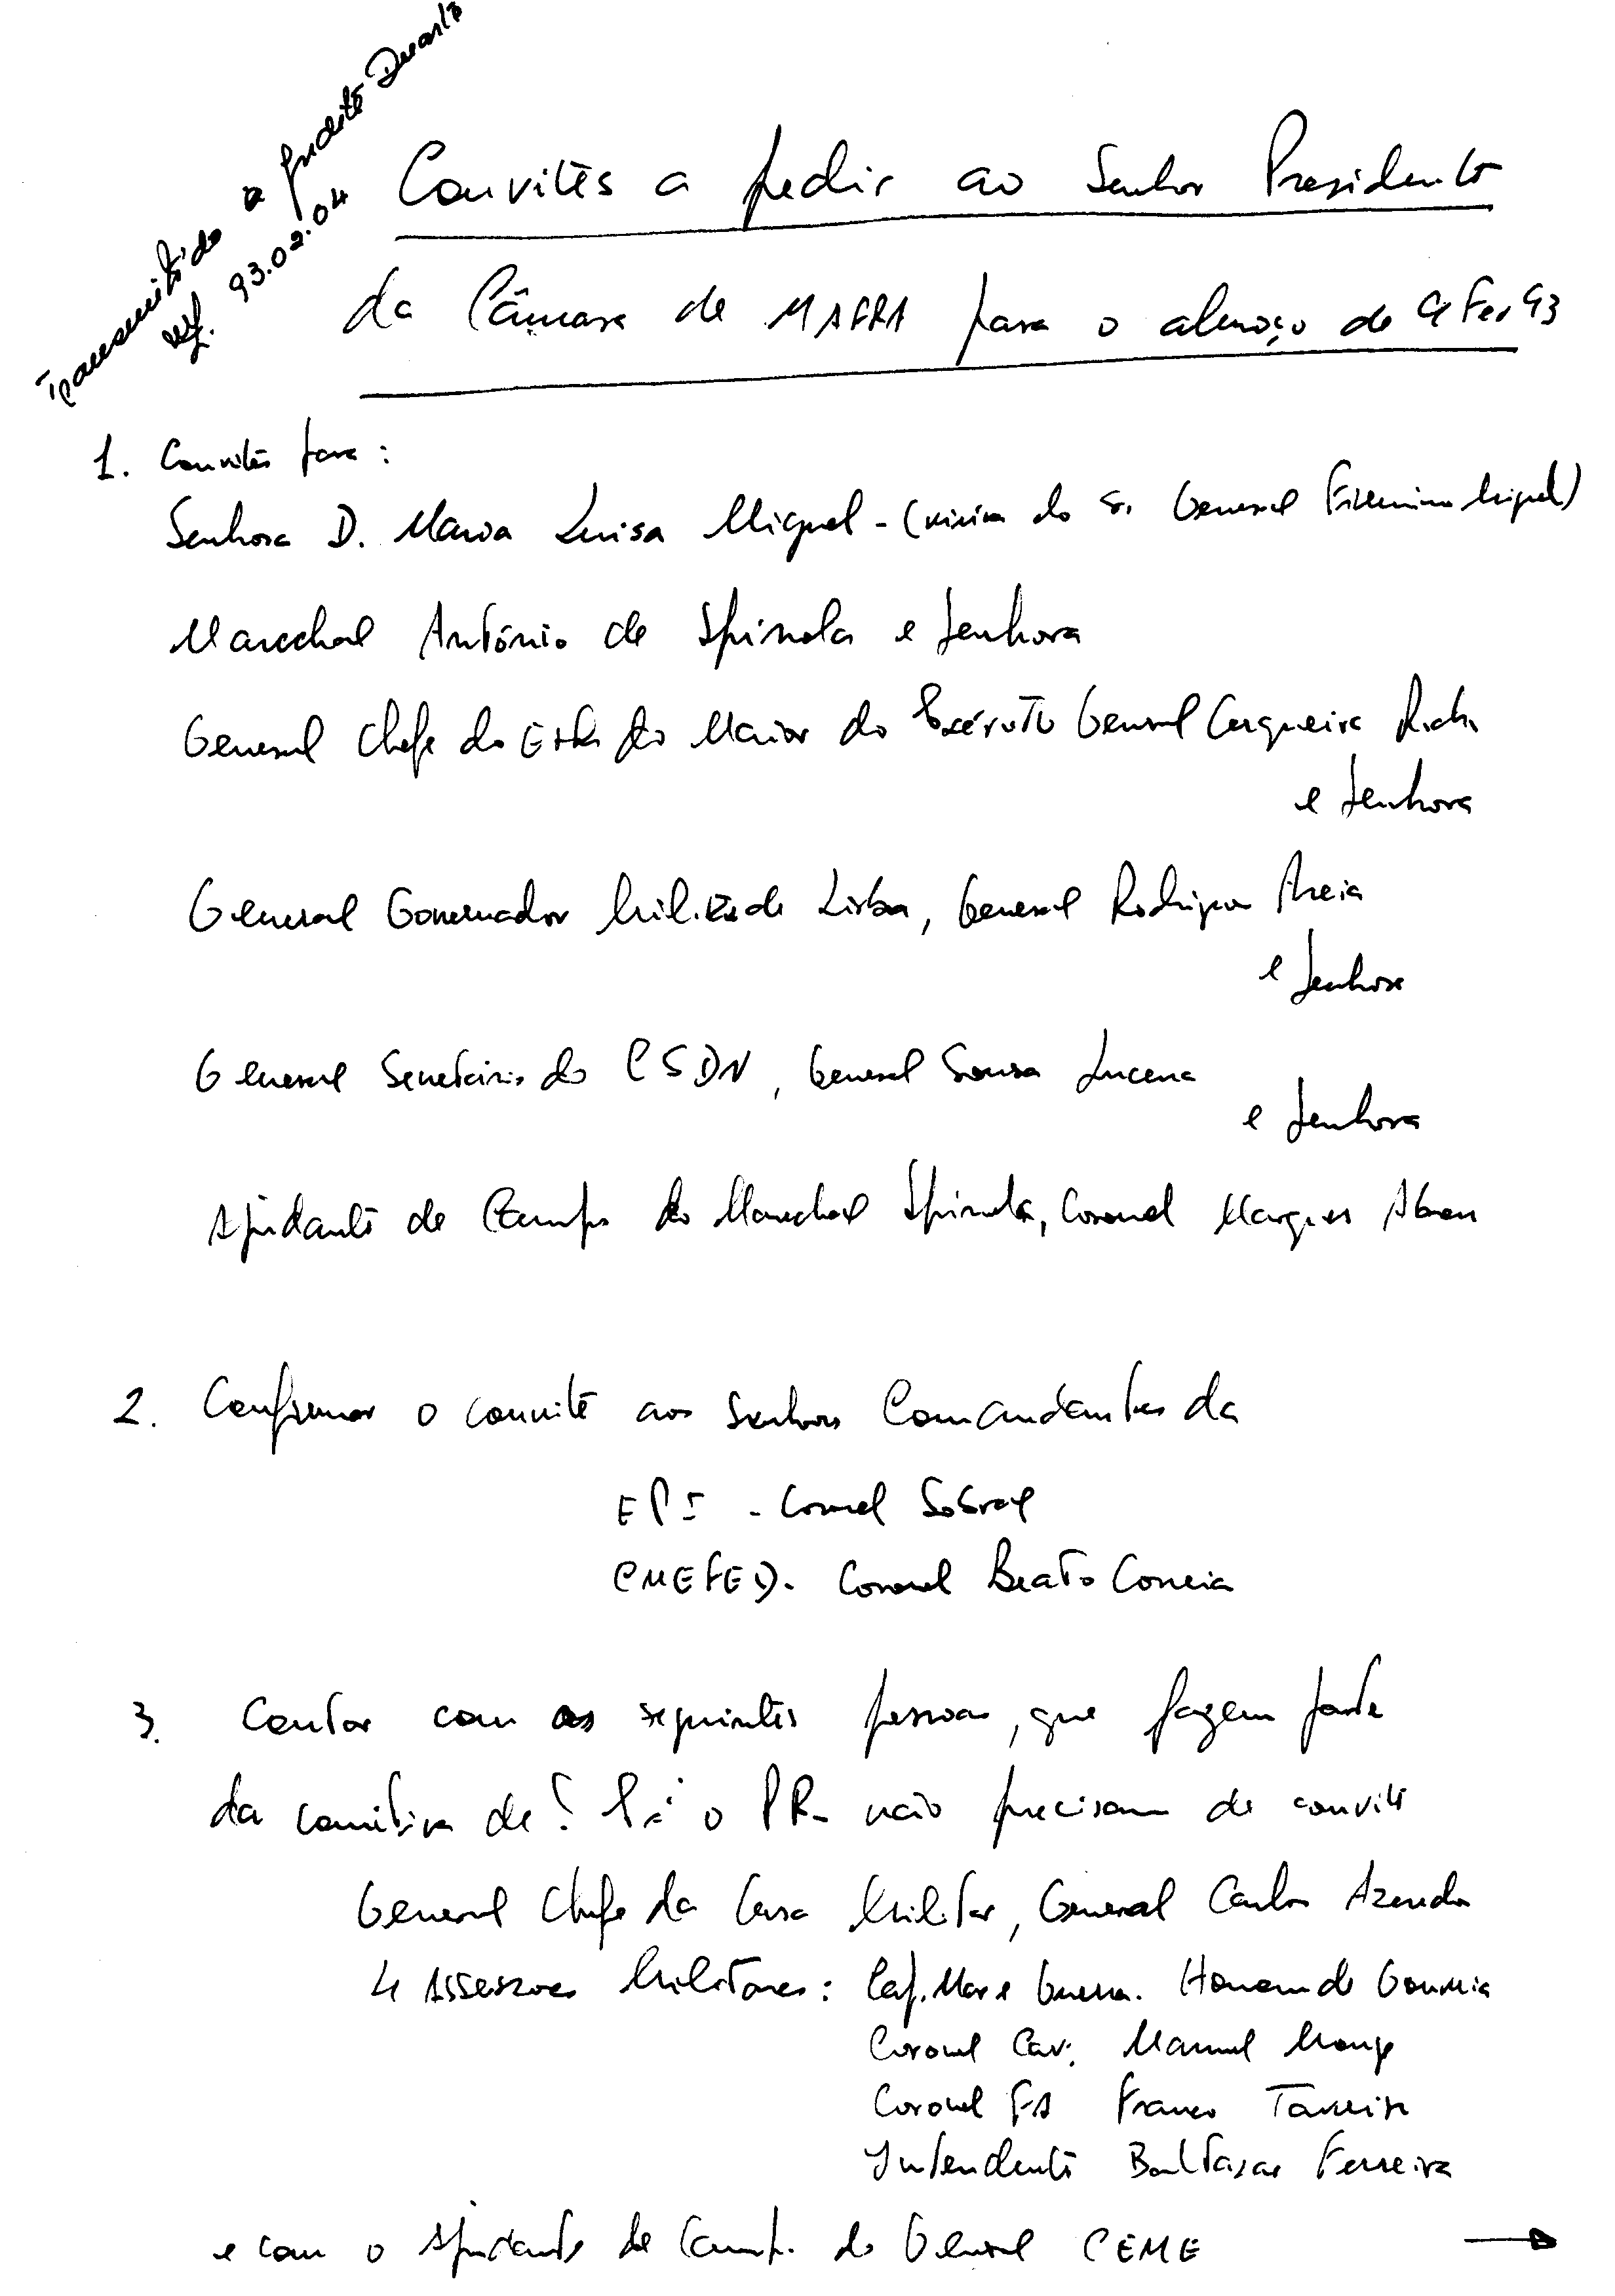 Transmitido a Judite Duarte
93.02.04
Convites a pedir ao Senhor Presidente
da Câmara de MAFRA para o almoço de 9 Fev 93
1. Convites para:
Senhora D. Maria Luisa Miguel - (viúva do Sr. General Firmino Miguel)
Marechal António de Spínola e Senhora
General Chefe do Estado Maior do Exército General Cerqueira Rocha
e Senhora
General Governador Milit. de Lisboa, General Rodrigues Areia
e Senhora
General Secretário do CSDN, General Sousa Lucena
e Senhora
Ajudante de Campo do Marechal Spínola, Coronel Marques Abreu
2. Confirmar o convite aos Senhores Comandantes da
EPI - Coronel Sobral
CMEFED. Coronel Beato Correia
3. Contar com as seguintes pessoas, que fazem parte
da comitiva de S. Exª o PR - não precisam de convite
General Chefe da Casa Militar, General Carlos Azeredo
4 Assessores Militares: Cap. Mar e Guerra. Homem de Gouveia
Coronel Cav. Manuel Monge
Coronel FA Franco Taveira
Intendente Baltazar Ferreira
e com o Ajudante de Camp. do General CEME →